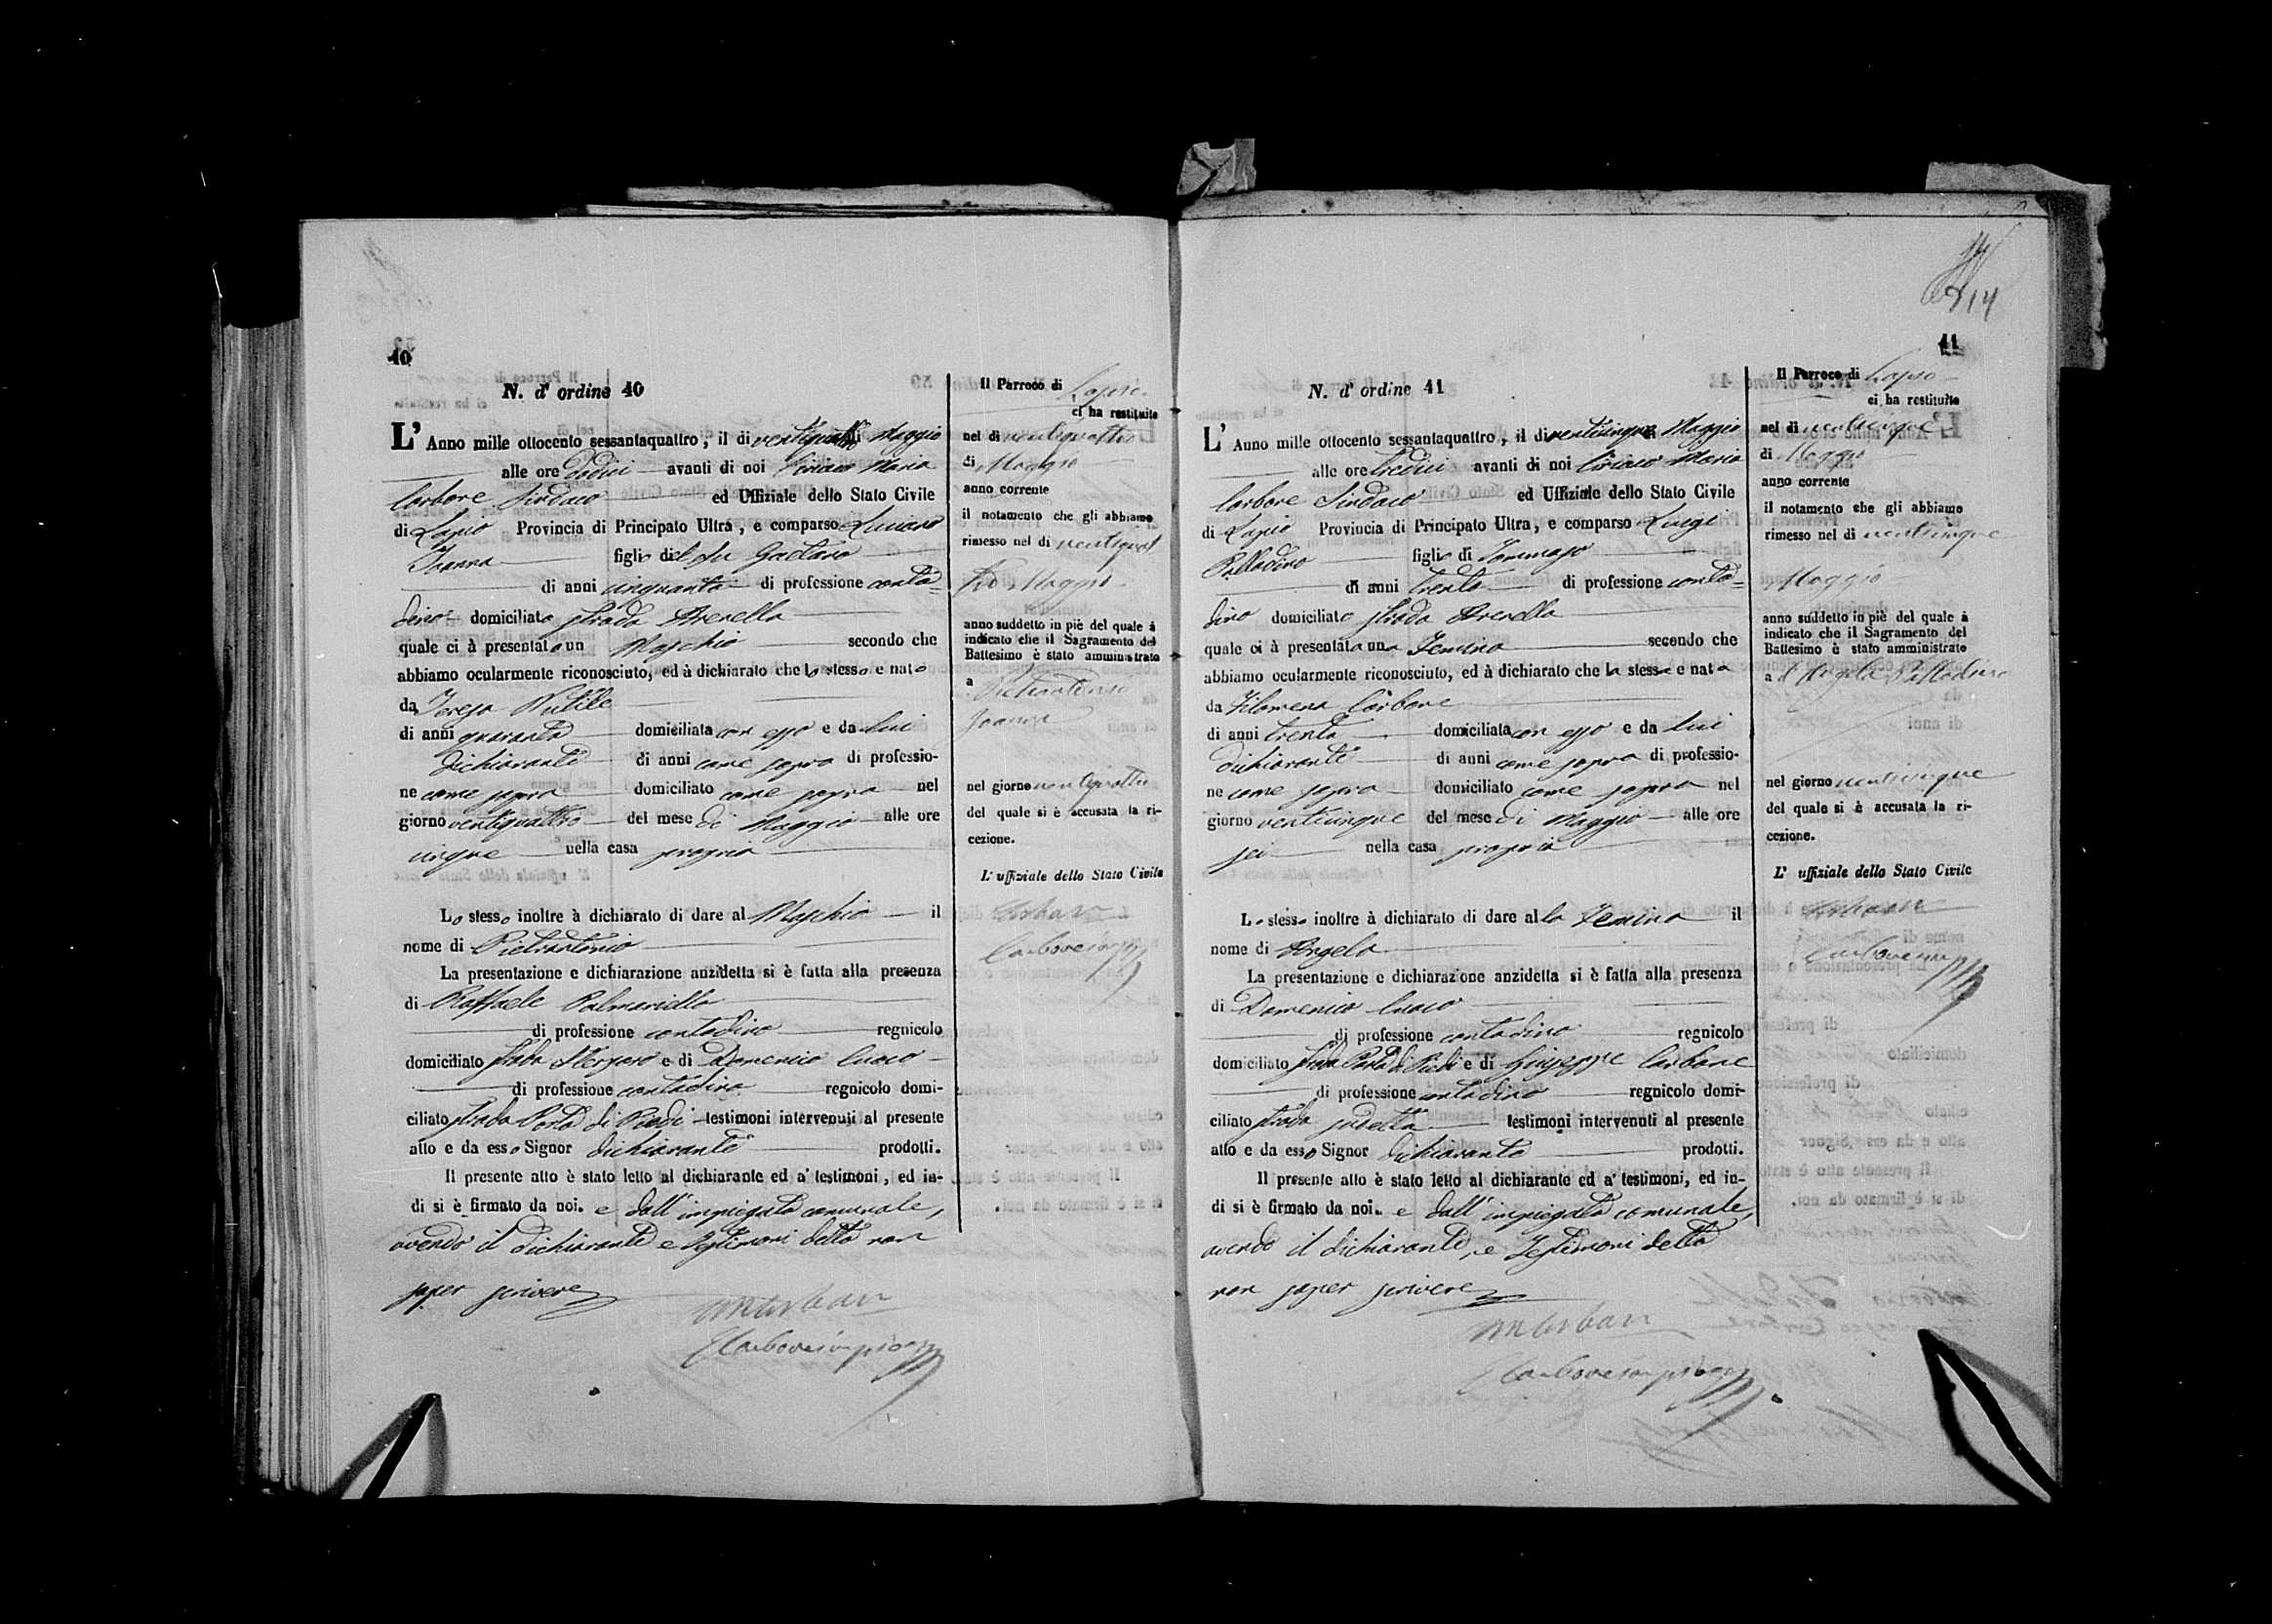 40
N. d' ordine 40
L' Anno mille ottocento sessantaquattro, il di ventiquattro Maggio
alle ore dodici avanti di noi Ciriaco Maria
Carbone Sindaco ed Uffiziale dello Stato Civile
di Lapio Provincia di Principato Ultra, e comparso Luciano
Joanna figlio del fu Gaetano
di anni cinquanta di professione conta=
dino domiciliato strada Arenella
quale ci à presentato un Maschio secondo che
abbiamo ocularmente riconosciuto, ed à dichiarato che lo stesso e nato
da Teresa
di anni quaranta domiciliata con esso e da lui
dichiarante di anni come sopra di professio-
ne come sopra domiciliato come sopra nel
giorno ventiquattro del mese di Maggio alle ore
cinque nella casa propria
Lo stesso inoltre à dichiarato di dare al Maschio il
nome di Pietrantonio
La presentazione e dichiarazione anzidetta si è fatta alla presenza
di Raffaele Palmariello
di professione contadino regnicolo
domiciliato strada e di Domenico Cuoco
di professione contadino regnicolo domi-
ciliato strada Porta di Piedi testimoni intervenuti al presente
atto e da esso Signor dichiarante prodotti.
Il presente atto è stato letto al dichiarante ed a' testimoni, ed in-
di si è firmato da noi. e dall' impiegato comunale,
avendo il dichiarante e testimoni detto non
saper scrivere
Il Parroco di Lapio
ci ha restituito
nel di ventiquattro
di Maggio
anno corrente
il notamento che gli abbiamo
rimesso nel di ventiquat
tro Maggio
anno suddetto in piè del quale à
indicato che il Sagramento del
Battesimo è stato amministrato
a Pietrantonio
Joanna
nel giorno ventiquattro
del quale si è accusata la ri-
cezione.
L' uffiziale dello Stato Civile
14
41
N. d' ordine 41
L' Anno mille ottocento sessantaquattro, il di venticinque Maggio
alle ore tredici avanti di noi Ciriaco Maria
Carbone Sindaco ed Uffiziale dello Stato Civile
di Lapio Provincia di Principato Ultra, e comparso Luigi
Palladino figlio di Tommaso
di anni trenta di professione conta=
dino domiciliato strada Arenella
quale ci à presentata una Femina secondo che
abbiamo ocularmente riconosciuto, ed à dichiarato che la stessa e nata
da Filomena Carbone
di anni trenta domiciliata con esso e da lui
dichiarante di anni come sopra di professio-
ne come sopra domiciliato come sopra nel
giorno venticinque del mese di Maggio alle ore
sei nella casa propria
Lo stesso inoltre à dichiarato di dare alla Femina il
nome di Angela
La presentazione e dichiarazione anzidetta si è fatta alla presenza
di Domenico Cuoco
di professione contadino regnicolo
domiciliato strada Porta di Piedi e di Giuseppe Carbone
di professione contadino regnicolo domi-
ciliato strada sudetta testimoni intervenuti al presente
atto e da esso Signor dichiarante prodotti.
Il presente atto è stato letto al dichiarante ed a' testimoni, ed in-
di si è firmato da noi. e dall' impiegato comunale,
avendo il dichiarante, e testimoni detto
non saper scrivere
Il Parroco di Lapio
ci ha restituito
nel di venticinque
di Maggio
anno corrente
il notamento che gli abbiamo
rimesso nel di venticinque
Maggio
anno suddetto in piè del quale à
indicato che il Sagramento del
Battesimo è stato amministrato
a d Angela Palladino
nel giorno venticinque
del quale si è accusata la ri-
cezione.
L' uffiziale dello Stato Civile